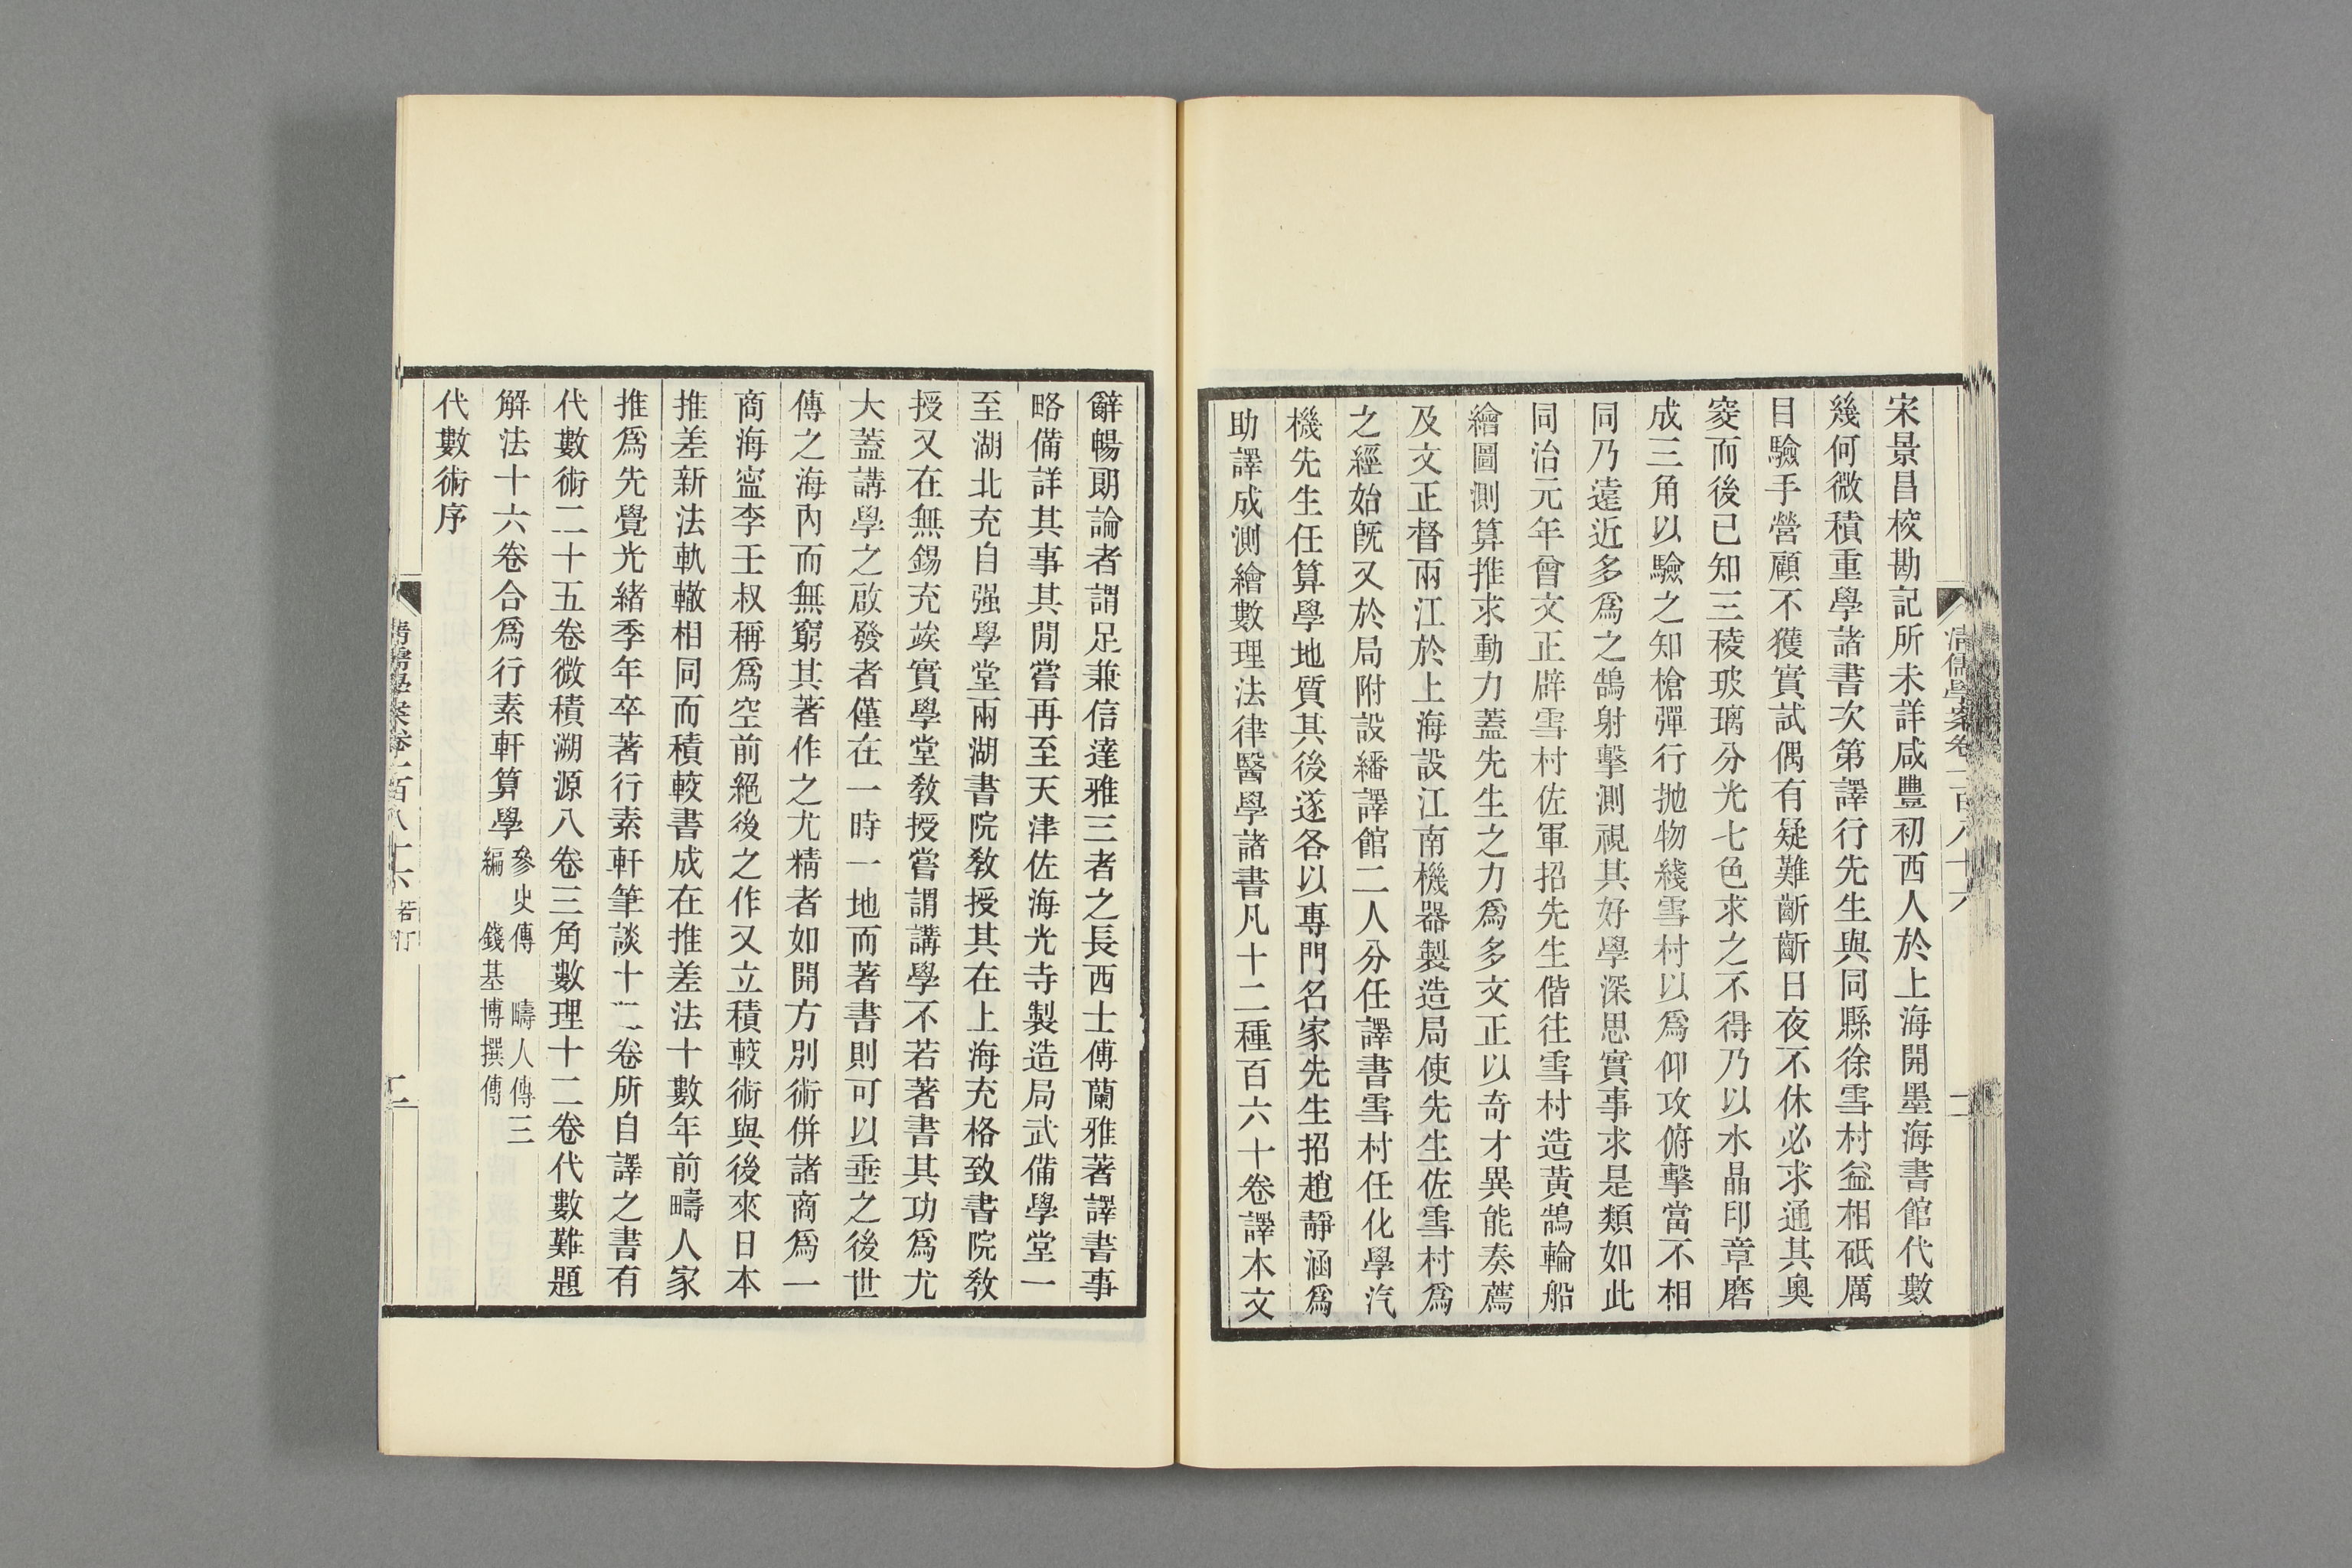 宋景昌校勘記所未詳咸豐初西人於上海開墨海書館代數
幾何微積重學諸書次第譯行先生與同縣徐雪村益相砥厲
目驗手營顧不獲實試偶有疑難斷斷日夜不休必求通其奧
窔而後已知三稜玻璃分光七色求之不得乃以水晶印章磨
成三角以驗之知槍彈行拋物綫雪村以爲仰攻俯擊當不相
同乃遠近多爲之鵠射擊測視其好學深思實事求是類如此
同治元年曾文正辟雪村佐軍招先生偕往雪村造黃鵠輪船
繪圖測算推求動力蓋先生之力爲多文正以奇才異能奏薦
及文正督兩江於上海設江南機器製造局使先生佐雪村爲
之經始旣又於局附設繙譯館二人分任譯書雪村任化學汽
機先生任算學地質其後遂各以專門名家先生招趙靜涵爲
助譯成測繪數理法律醫學諸書凡十二種百六十卷譯木文
辭暢朗論者謂足兼信達雅三者之長西士傅蘭雅著譯書事
略備詳其事其閒嘗再至天津佐海光寺製造局武備學堂一
至湖北充自强學堂兩湖書院敎授其在上海充格致書院敎
授又在無錫充竢實學堂敎授嘗謂講學不若著書其功爲尤
大蓋講學之啟發者僅在一時一地而著書則可以垂之後世
傳之海內而無窮其著作之尤精者如開方別術併諸商爲一
商海寍李壬叔稱爲空前絕後之作又立積較術與後來日本
推差新法軌轍相同而積較書成在推差法十數年前疇人家
推爲先覺光緒季年卒著行素軒筆談十二卷所自譯之書有
代數術二十五卷微積溯源八卷三角數理十二卷代數難題
解法十六卷合爲行素軒算學參史傳 疇人傳三
編 錢基博撰傳
代數術序
清儒學案卷一百八十六 若汀 二